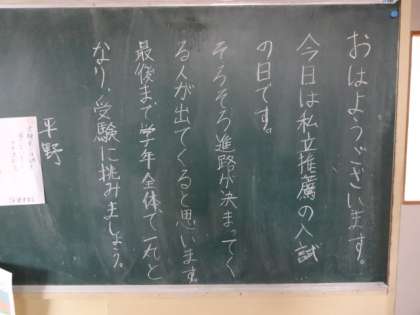 おはようございます。
今日は私立推薦の入試
の日です。
そろそろ進路が決まってく
る人が出てくると思います。
最後まで学年全体で一丸と
なり、受験に挑みましょう。
平野